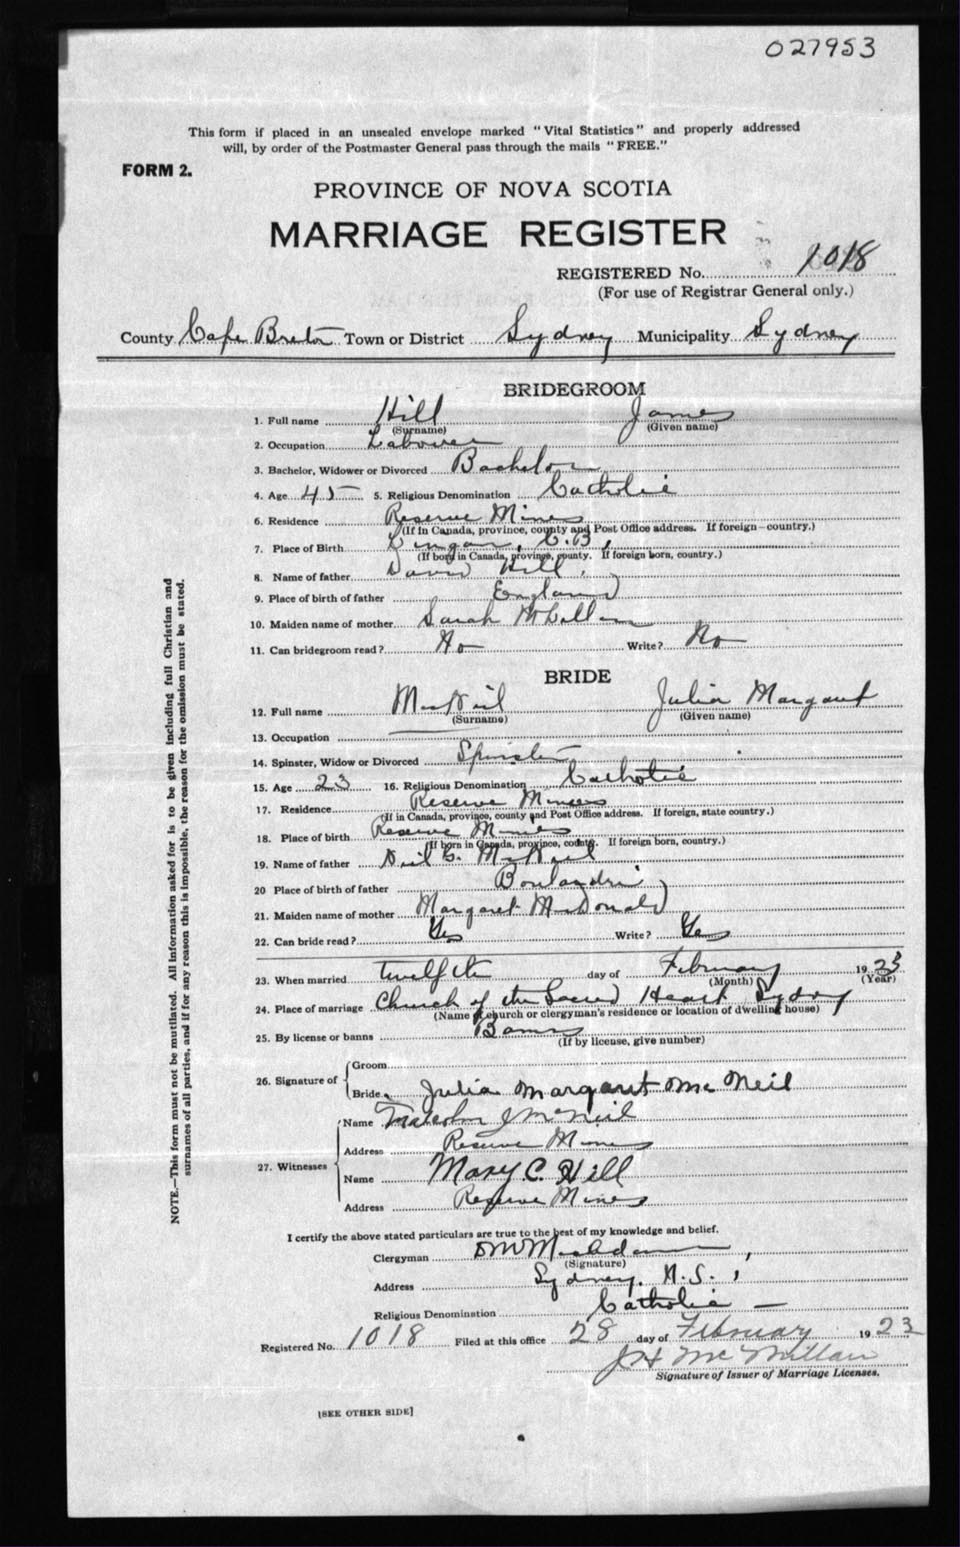 027953
This form if placed in an unsealed envelope marked "Vital Statistics" and properly addressed
will, by order of the Postmaster General pass through the mails "FREE."
FORM 2.
PROVINCE OF NOVA SCOTIA
MARRIAGE REGISTER
REGISTERED No. 1018
(For use of Registrar General only.)
County Cape Breton Town or District Sydney Municipality Sydney
BRIDEGROOM
1. Full name Hill James
(Surname) (Given name)
2. Occupation Labourer
3. Bachelor, Widower or Divorced Bachelor
4. Age 45 5. Religious Denomination Catholic
6. Residence Reserve Mines
(If in Canada, province, county and Post Office address. If foreign—country.)
7. Place of Birth Lingan, C.B.
(If born in Canada, province, county. If foreign born, country.)
8. Name of father David Hill
9. Place of birth of father England
10. Maiden name of mother Sarah
11. Can bridegroom read? No Write? No
BRIDE
12. Full name MacNeil Julia Margaret
(Surname) (Given name)
13. Occupation
14. Spinster, Widow or Divorced Spinster
15. Age 23 16. Religious Denomination Catholic
17. Residence Reserve Mines
(If in Canada, province, county and Post Office address. If foreign, state country.)
18. Place of birth Reserve Mines
(If born in Canada, province, county. If foreign born, country.)
19. Name of father Neil C. MacNeil
20 Place of birth of father
21. Maiden name of mother Margaret MacDonald
22. Can bride read? Yes Write? Yes
23. When married twelfth day of February 1923
(Month) (Year)
24. Place of marriage Church of the Sacred Heart Sydney
(Name of church or clergyman's residence or location of dwelling house)
25. By license or banns Banns
(If by license, give number)
26. Signature of
Groom
Bride Julia Margaret Mc Neil
27. Witnesses
Name Malcolm J McNeil
Address Reserve Mines
Name Mary C. Hill
Address Reserve Mines
I certify the above stated particulars are true to the best of my knowledge and belief.
Clergyman
(Signature)
Address Sydney, N.S.
Religious Denomination Catholic
Registered No. 1018 Filed at this office 28 day of February 1923
J H McMillan
Signature of Issuer of Marriage Licenses.
[SEE OTHER SIDE]
NOTE.—This form must not be mutilated. All information asked for is to be given including full Christian and
surnames of all parties, and if for any reason this is impossible, the reason for the omission must be stated.